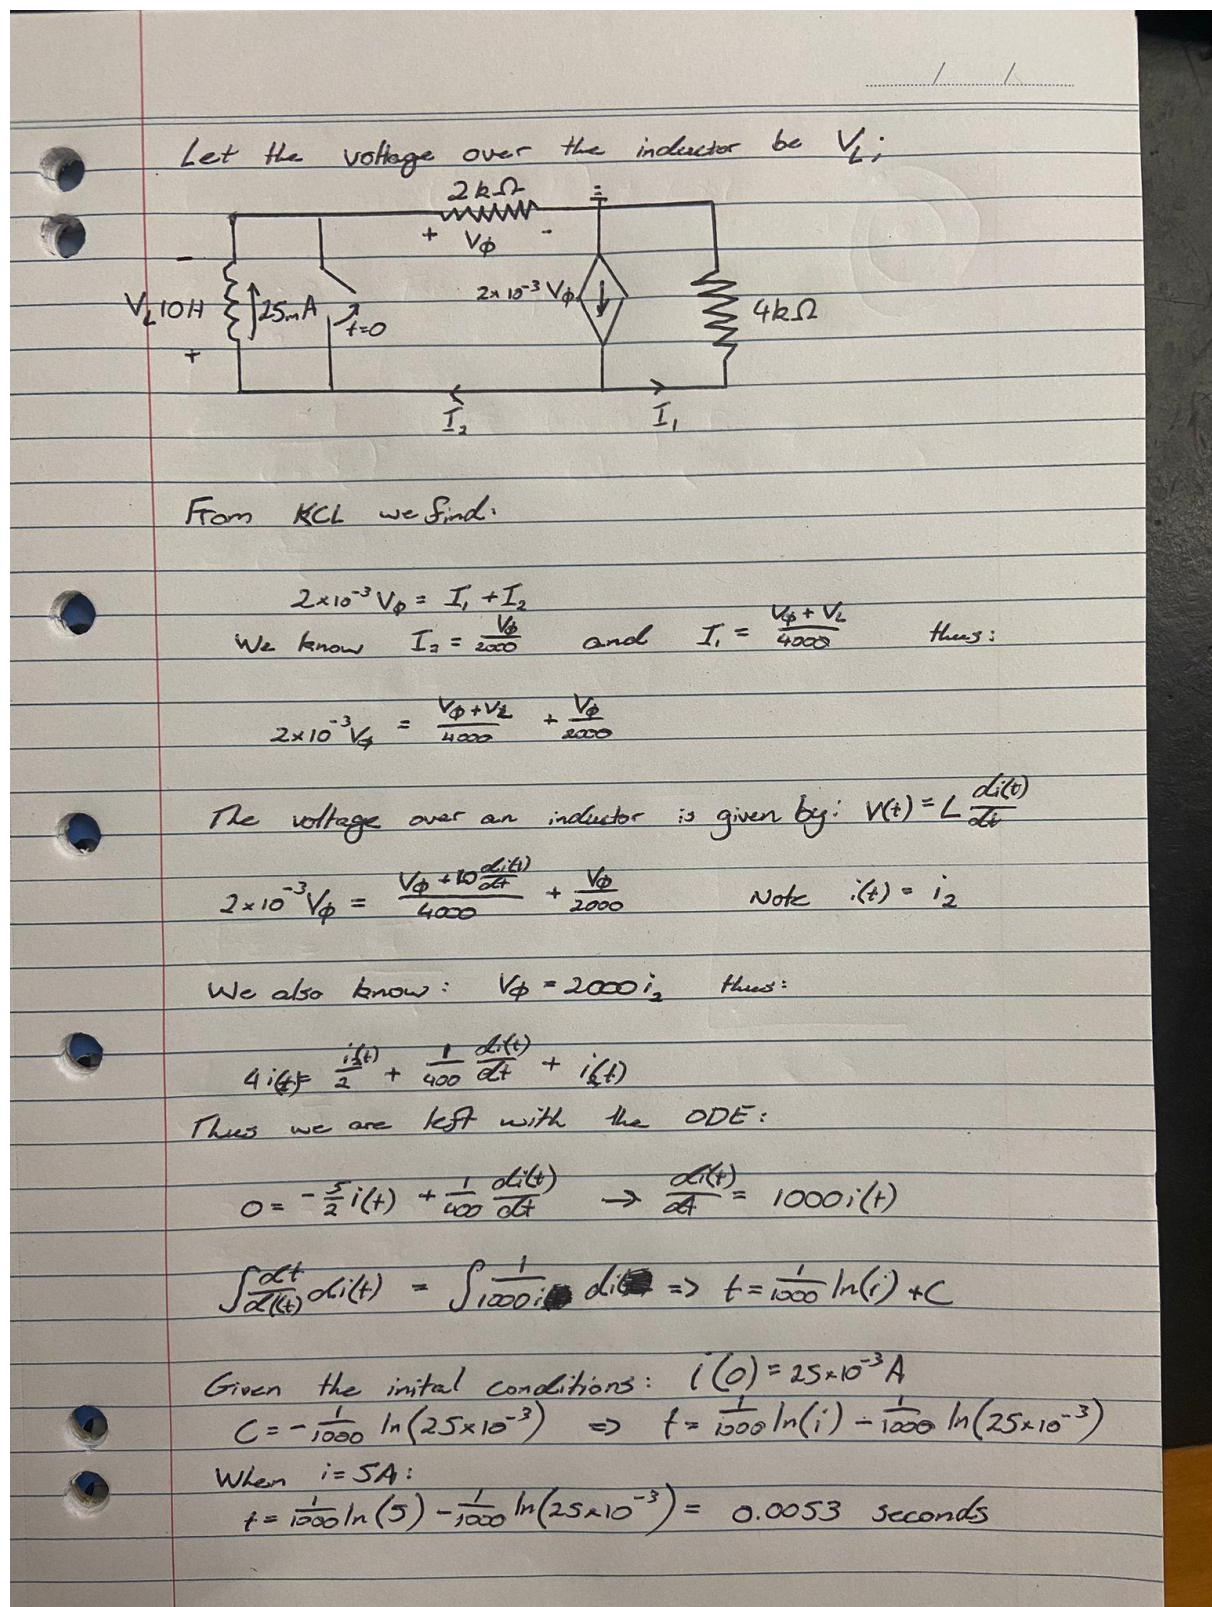 / /
Let the voltage over the inductor be V_L;
2kΩ
+ Vϕ -
-
V_L 10H
25mA
t=0
2×10⁻³ Vϕ
4kΩ
+
I₂
I₁
From KCL we find:
2×10⁻³ Vϕ = I₁ + I₂
We know I₂ = Vϕ/2000 and I₁ = (Vϕ + V_L)/4000 thus:
2×10⁻³ Vϕ = (Vϕ + V_L)/4000 + Vϕ/2000
The voltage over an inductor is given by: V(t) = L di(t)/dt
2×10⁻³ Vϕ = (Vϕ + 10 di(t)/dt)/4000 + Vϕ/2000 Note i(t) = i₂
We also know: Vϕ = 2000 i₂ thus:
4i(t) = i(t)/2 + 1/400 di(t)/dt + i(t)
Thus we are left with the ODE:
0 = -5/2 i(t) + 1/400 di(t)/dt → di(t)/dt = 1000i(t)
∫ dt/di(t) di(t) = ∫ 1/1000i di => t = 1/1000 ln(i) + C
Given the inital conditions: i(0) = 25×10⁻³ A
C = -1/1000 ln(25×10⁻³) => t = 1/1000 ln(i) - 1/1000 ln(25×10⁻³)
When i = 5A:
t = 1/1000 ln(5) - 1/1000 ln(25×10⁻³) = 0.0053 seconds